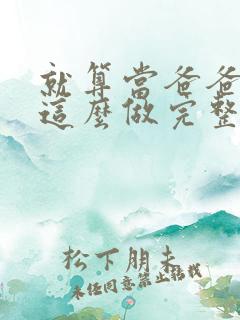 就算當爸爸
這麼做完整
松下朋未
未經同意禁止搭訕